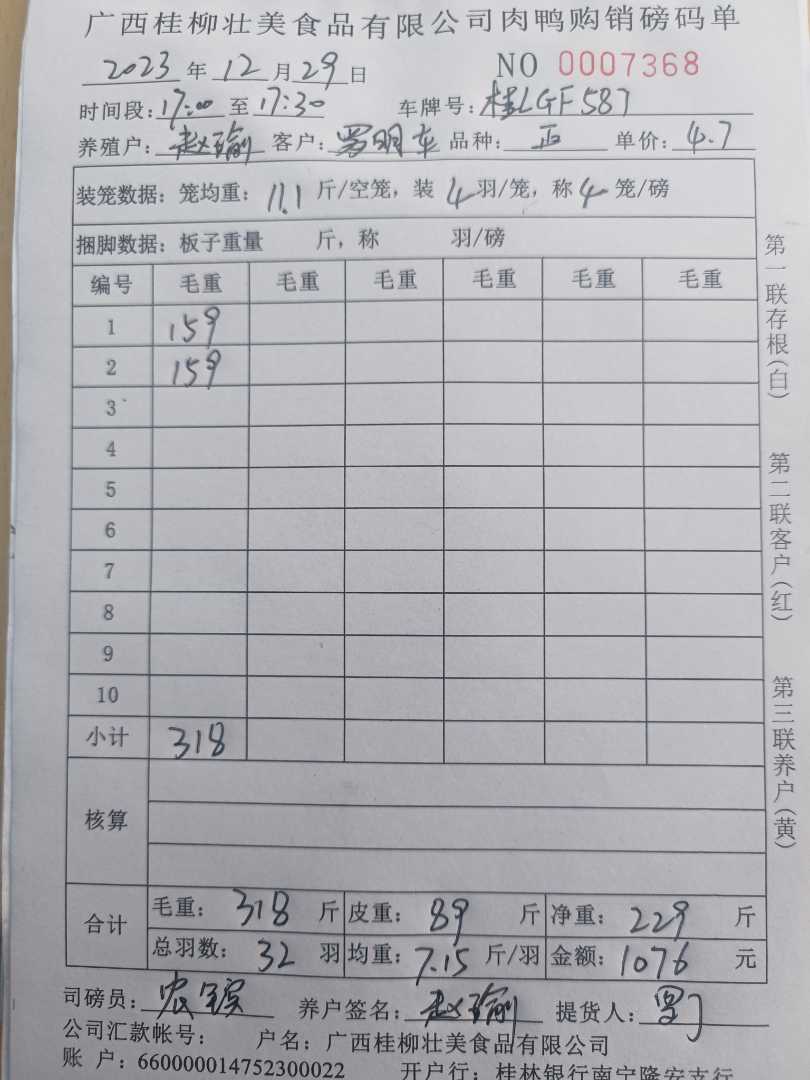 广西桂柳壮美食品有限公司肉鸭购销磅码单
2023年12月29日 NO 0007368
时间段:17:00至17:30 车牌号:桂LGF587
养殖户:赵瑜 客户:罗明车 品种:正 单价:4.7
装笼数据:笼均重:11.1斤/空笼,装4羽/笼,称4笼/磅
捆脚数据:板子重量 斤,称 羽/磅
编号 毛重 毛重 毛重 毛重 毛重 毛重
1 159
2 159
3
4
5
6
7
8
9
10
小计 318
核算
合计 毛重:318斤 皮重:89斤 净重:229斤
总羽数:32羽 均重:7.15斤/羽 金额:1076元
司磅员: 养户签名:赵瑜 提货人:
公司汇款帐号: 户名:广西桂柳壮美食品有限公司
账 户:660000014752300022 开户行:桂林银行南宁隆安支行
第一联存根(白)
第二联客户(红)
第三联养户(黄)